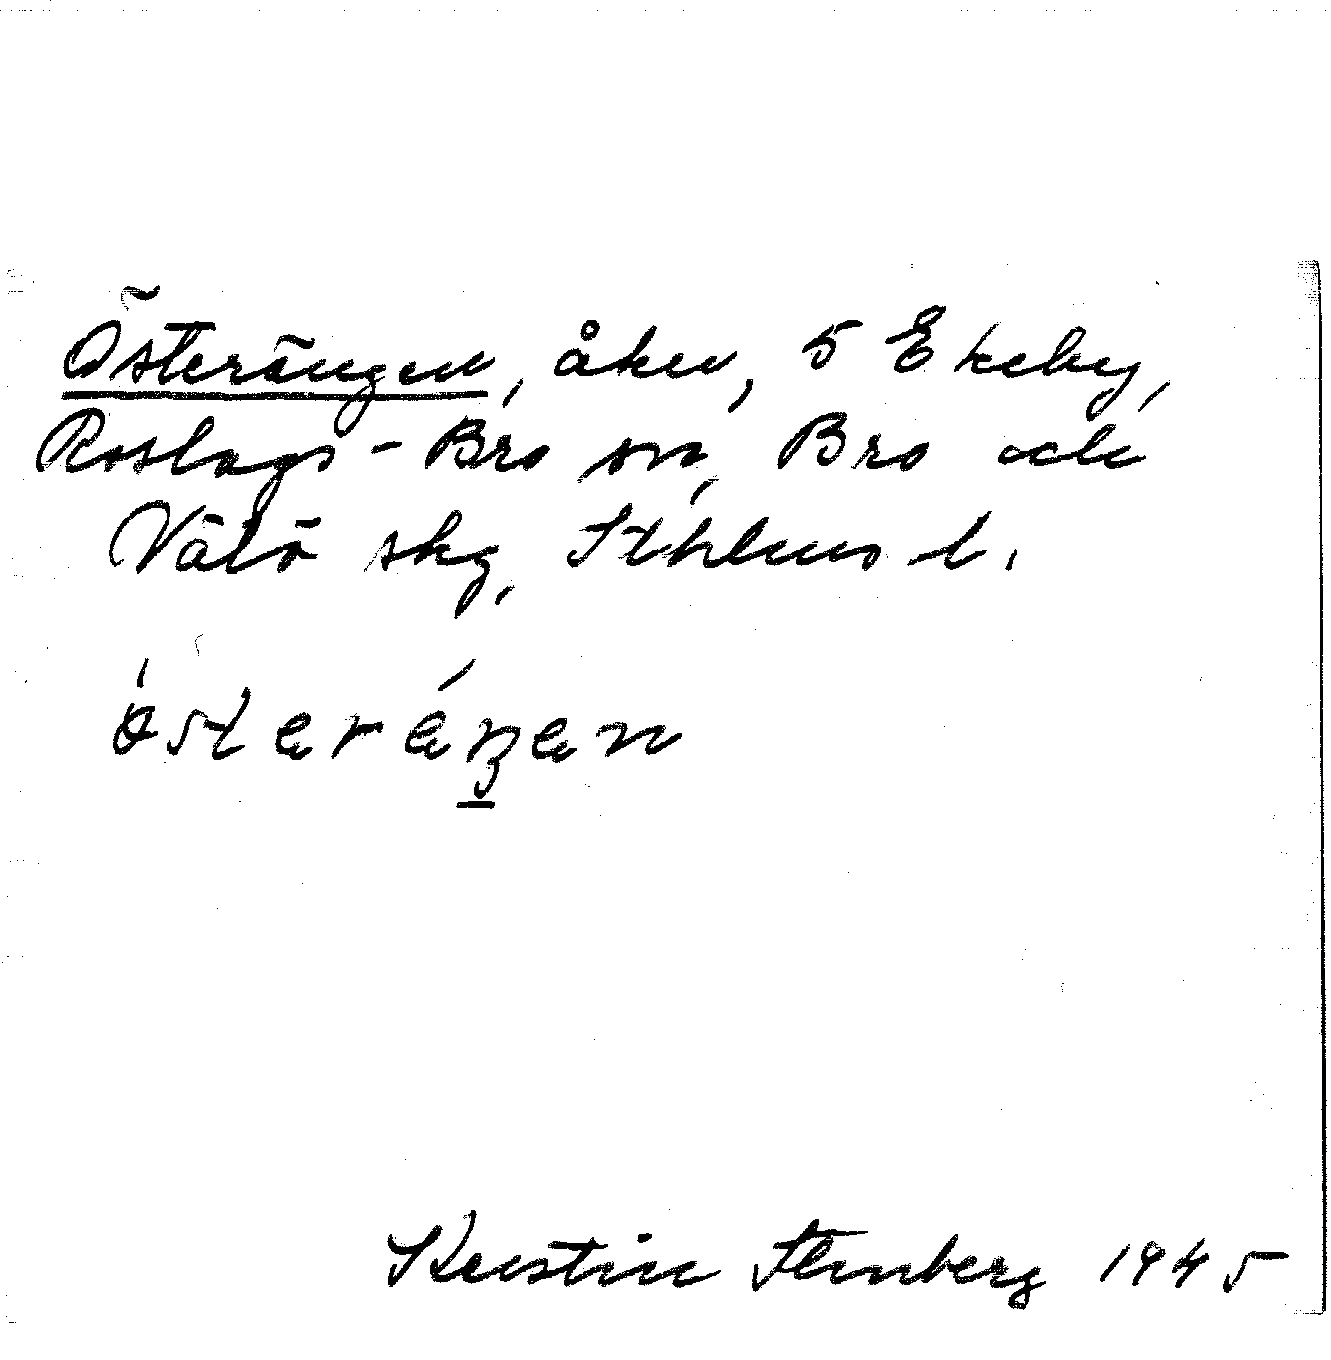 Österängen, åker, 5 Ekeby,
Roslags-Bro sn, Bro och
Vätö skg, Sthlms l.
Kerstin Stenberg 1945